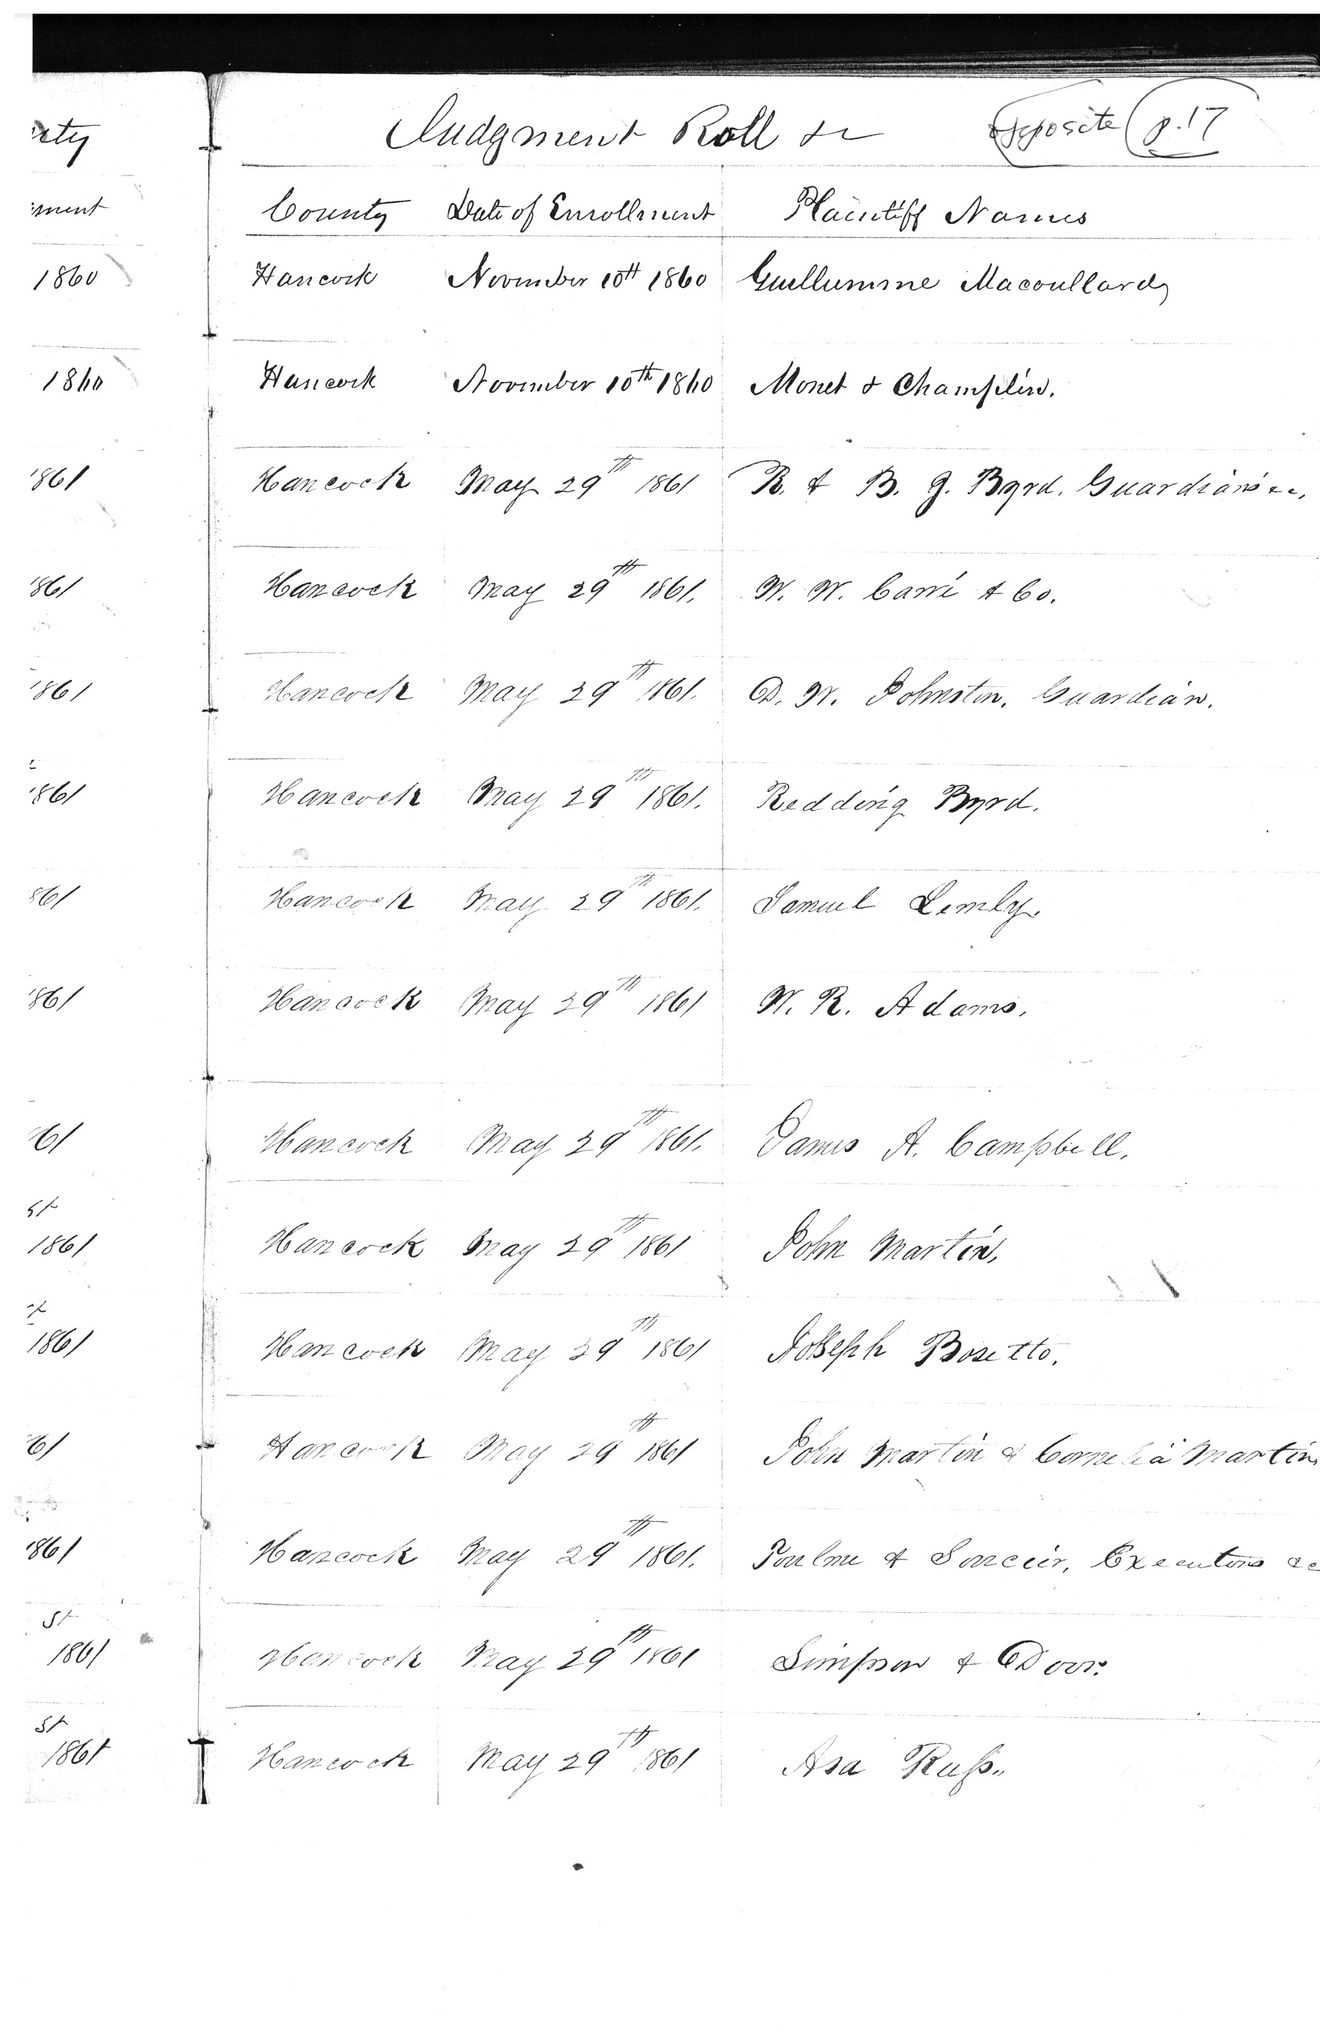 Judgment Roll &c opposite p. 17
rty
ment County Date of Enrollment Plaintiff Names
1860 Hancock November 10th 1860 Guillumme Macoullard
1860 Hancock November 10th 1860 Monet & Champlin.
1861 Hancock May 29th 1861 R. & B. J. Byrd. Guardians &c.
1861 Hancock May 29th 1861. W. W. Carré & Co.
1861 Hancock May 29th 1861. D. W. Johnston. Guardian.
1861 Hancock May 29th 1861. Redding Byrd.
861 Hancock May 29th 1861. Samuel Lemly.
861 Hancock May 29th 1861 W. R. Adams.
61 Hancock May 29th 1861. James A. Campbell.
st
1861 Hancock May 29th 1861 John Martin.
st
1861 Hancock May 29th 1861 Joseph Bosetto.
61 Hancock May 29th 1861 John Martin & Cornelia Martin
1861 Hancock May 29th 1861. Poulme & Executors &c
st
1861 Hancock May 29th 1861 Simpson & Door.
st
1861 Hancock May 29th 1861 Asa Russ.